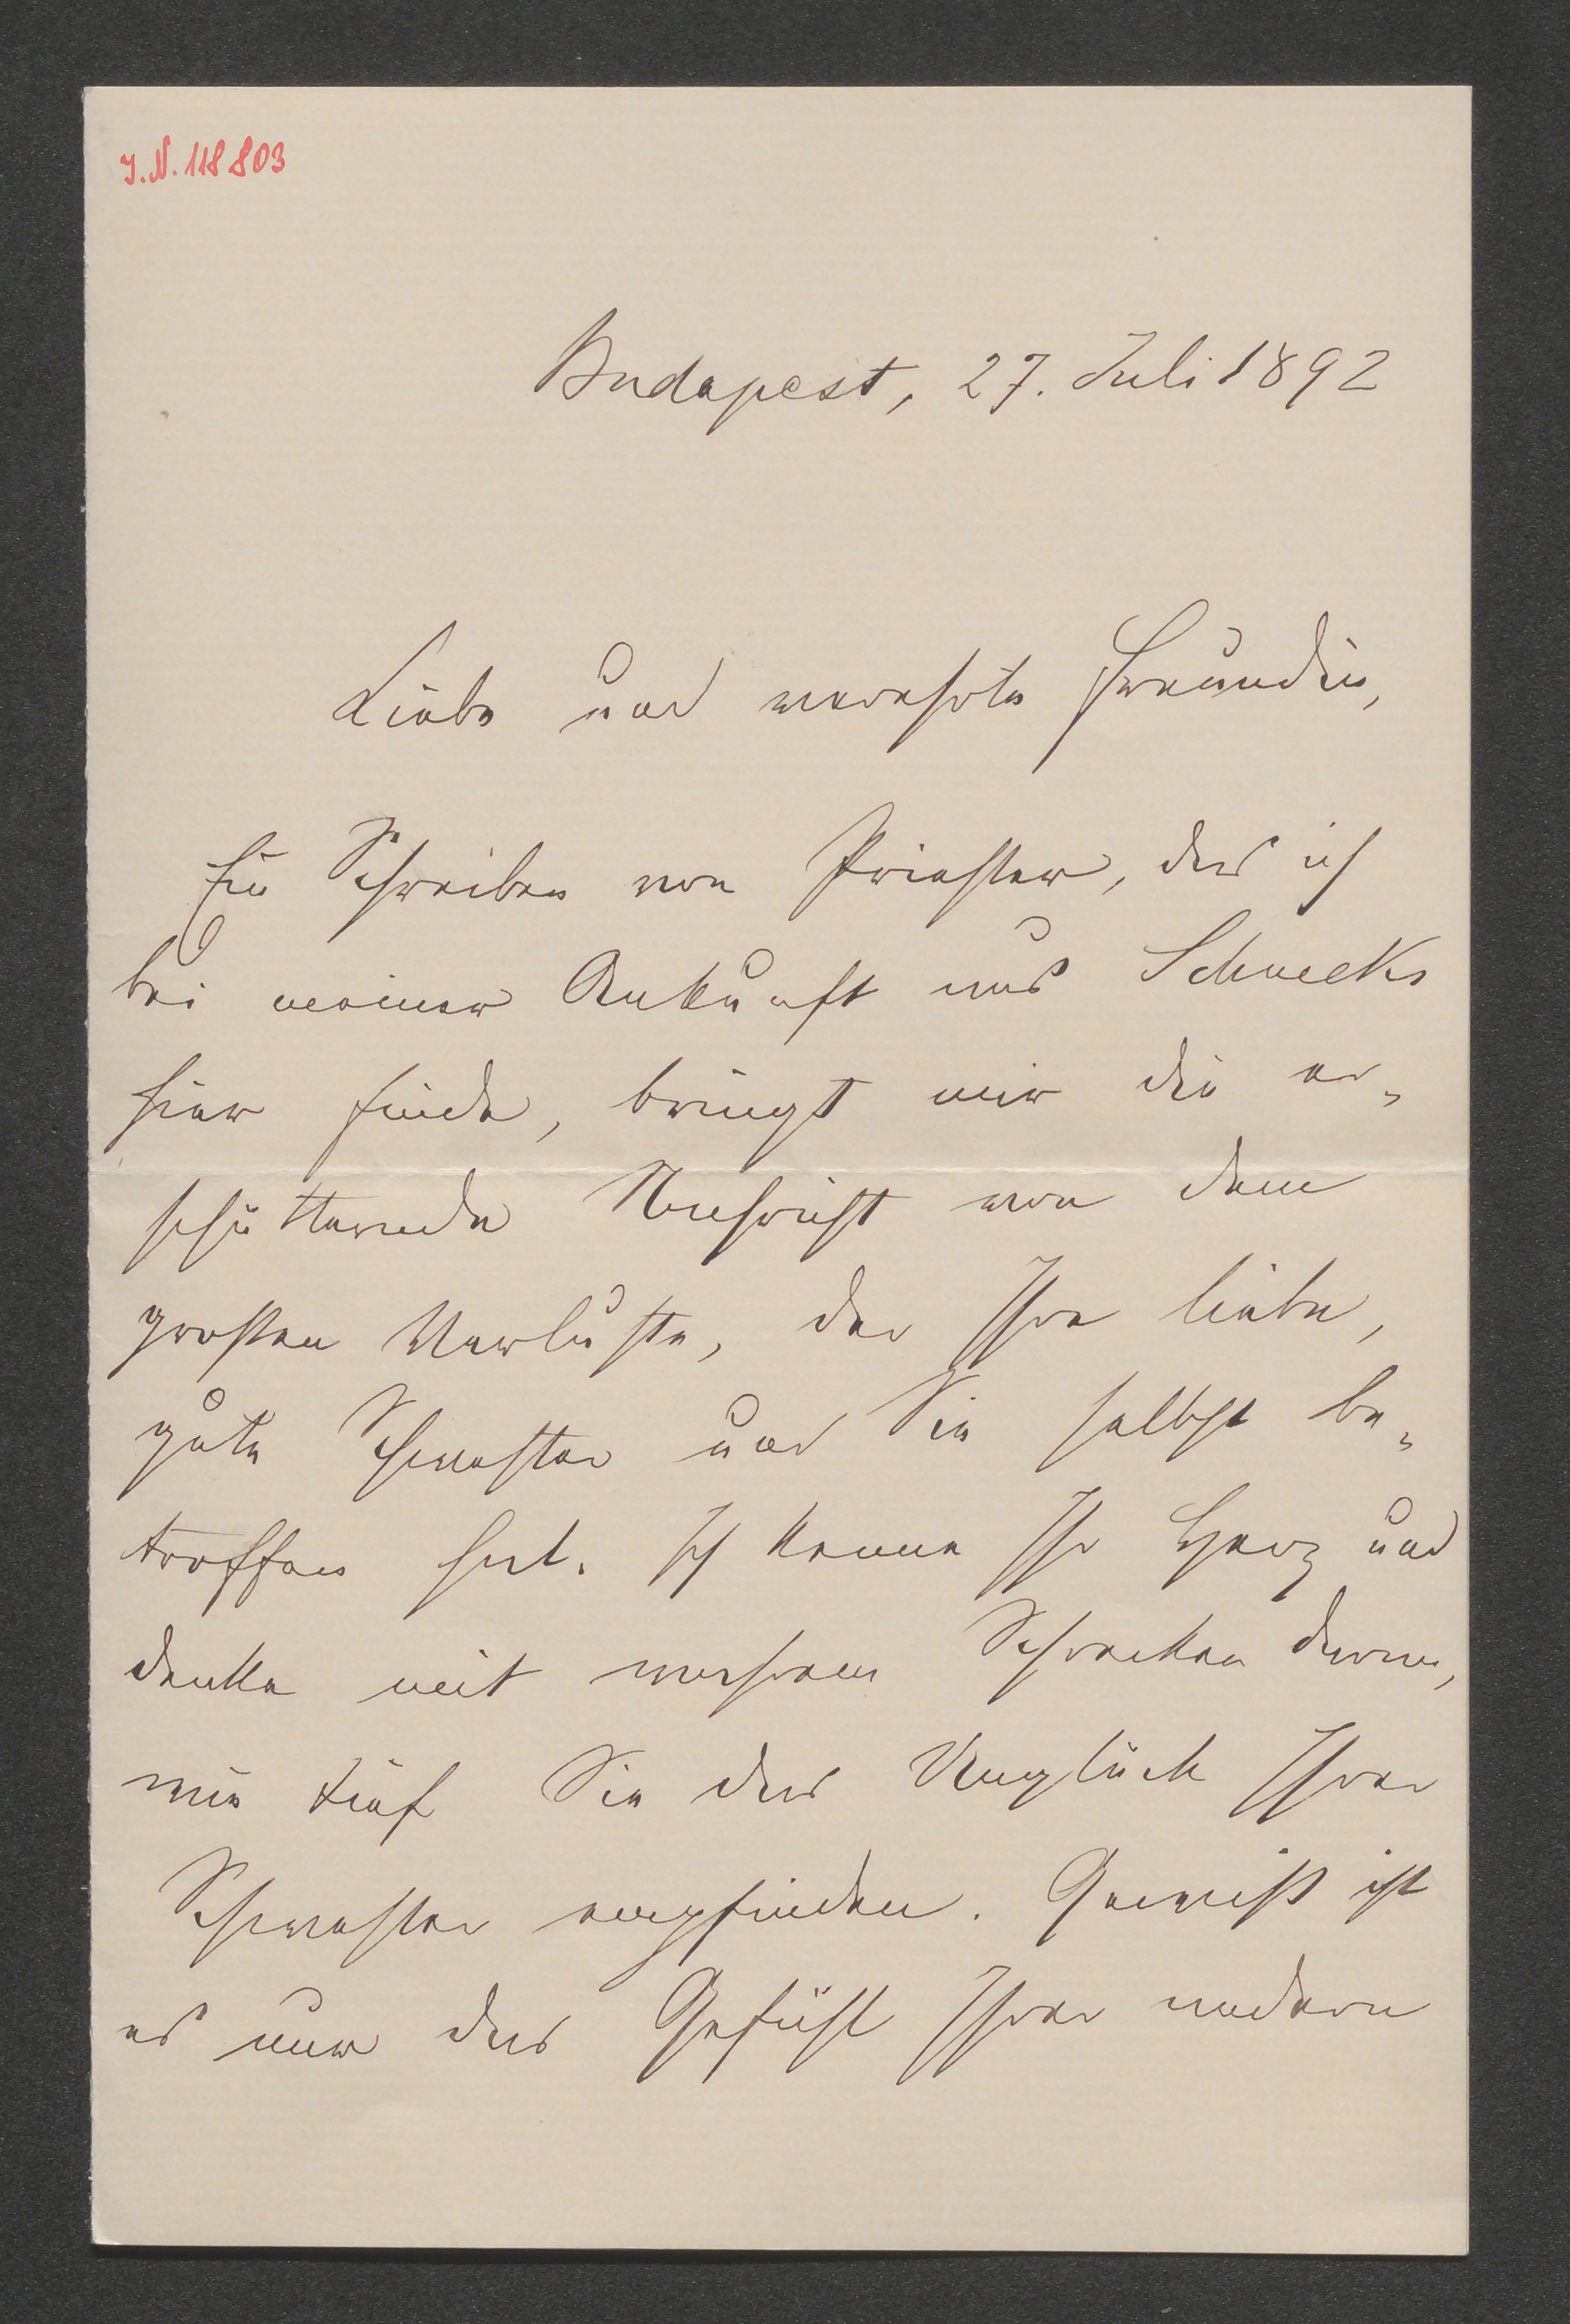 I.N. 118803
Budapest, 27. Juli 1892
Liebe und verehrte Freundin,
Ein Schreiben von Priester, das ich
bei meiner Ankunft aus Schmecks
hier finde, bringt mir die er-
schütternde Nachricht von dem
großen Verluste, der Ihre liebe,
gute Schwester und Sie selbst be-
troffen hat. Ich kenne Ihr Herz und
denke mit wahrem Schrecken daran,
wie tief Sie das Unglück Ihrer
Schwester empfinden. Gewiß ist
es nur das Gefühl Ihrer andern